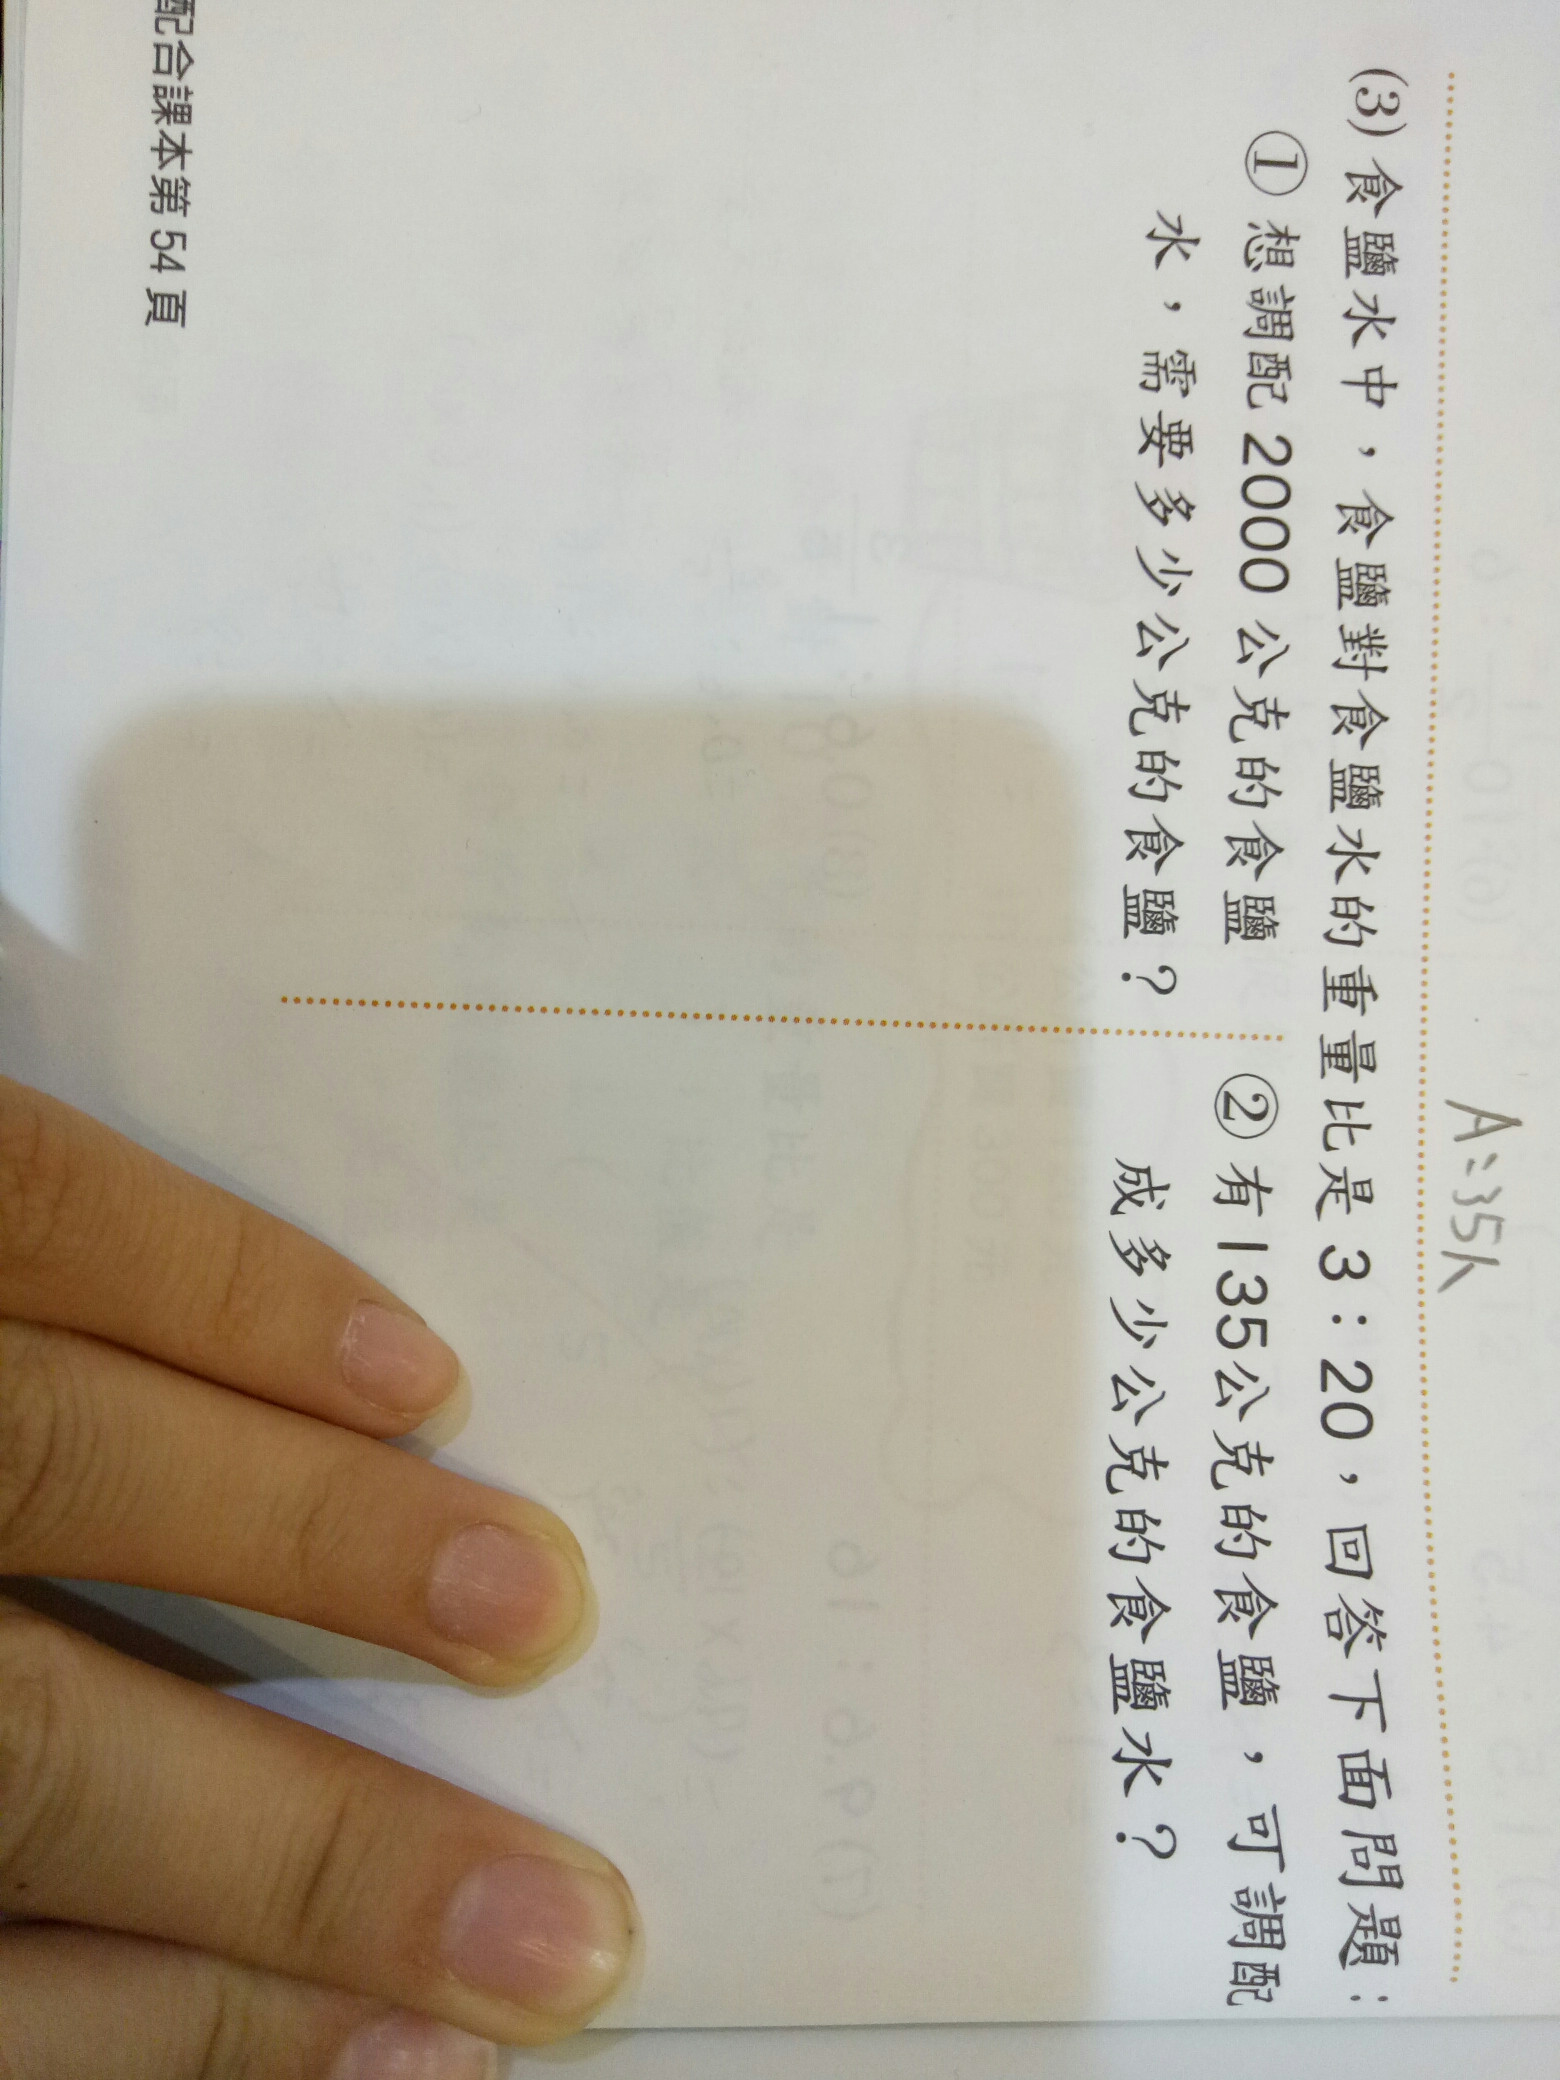 A：35人
(3) 食鹽水中，食鹽對食鹽水的重量比是3：20，回答下面問題：
① 想調配2000公克的食鹽
水，需要多少公克的食鹽？
② 有135公克的食鹽，可調配
成多少公克的食鹽水？
配合課本第 54 頁